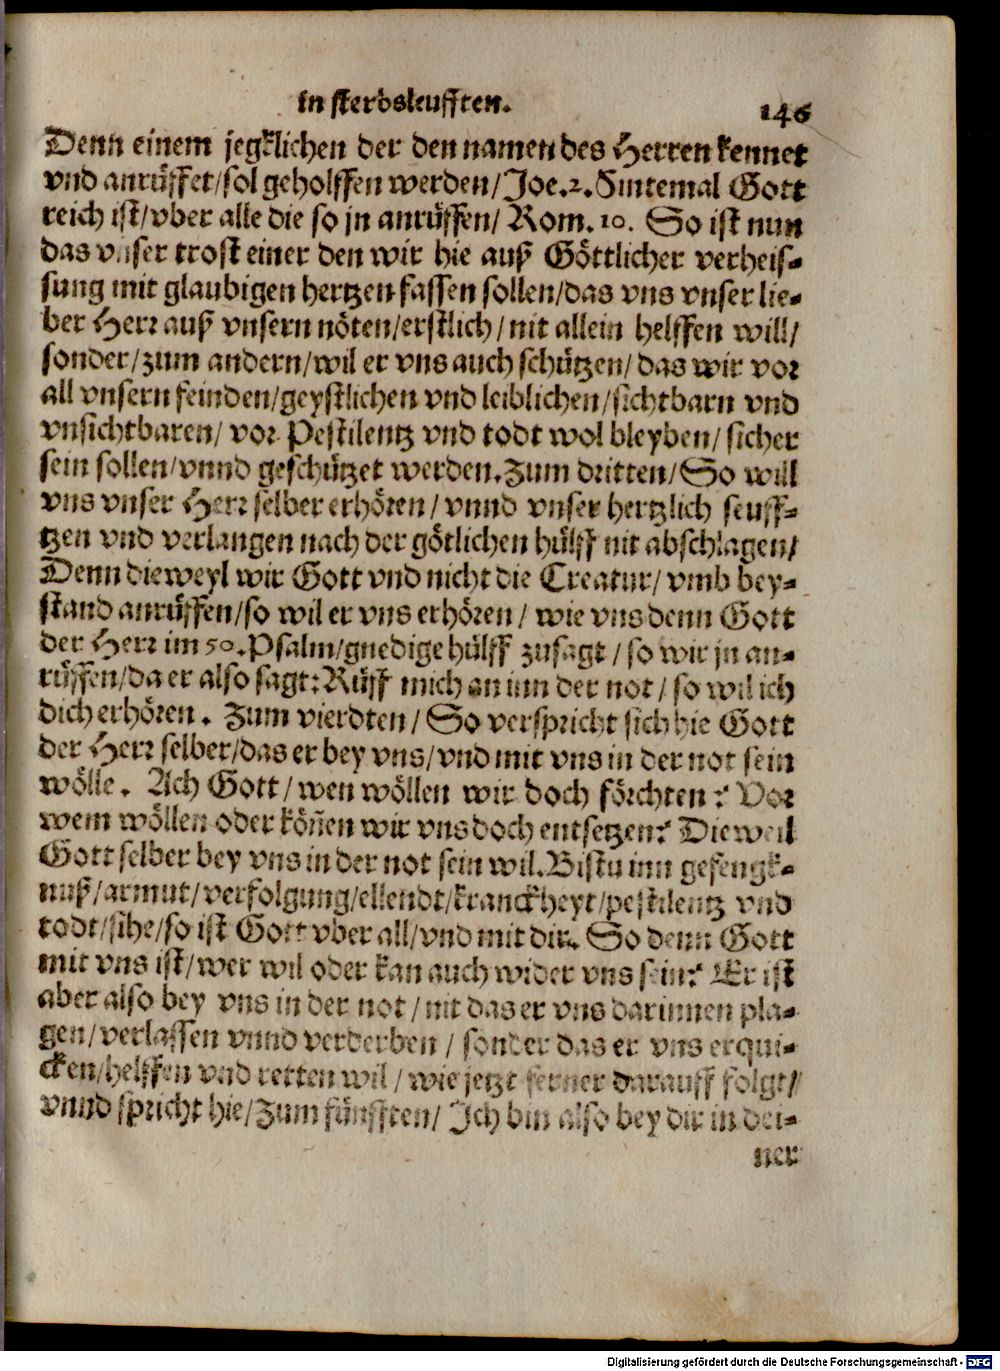 in sterbsleufften.
146
Denn einem jegklichen der den namen des Herren kennet
vnd anrüffet/sol geholffen werden/Joe.2. Sintemal Gott
reich ist/vber alle die so jn anrüffen/ Rom. 10. So ist nun
das vnser trost einer den wir hie auß Göttlicher verheis-
sung mit glaubigen hertzen fassen sollen/das vns vnser lie-
ber Herr auß vnsern nöten/erstlich/nit allein helffen will/
sonder/zum andern/wil er vns auch schützen/das wir vor
all vnsern feinden/geystlichen vnd leiblichen/sichtbarn vnd
vnsichtbaren/ vor Pestilentz vnd todt wol bleyben/ sicher
sein sollen/vnnd geschützet werden. Zum dritten/So will
vns vnser Herr selber erhören/ vnnd vnser hertzlich seuff-
tzen vnd verlangen nach der götlichen hülff nit abschlagen/
Denn dieweyl wir Gott vnd nicht die Creatur/ vmb bey-
stand anrüffen/so wil er vns erhören/ wie vns denn Gott
der Herr im 50. Psalm/gnedige hülff zusagt/so wir jn an-
rüffen/da er also sagt: Rüff mich an inn der not/ so wil ich
dich erhören. Zum vierdten/ So verspricht sich hie Gott
der Herr selber/das er bey vns/vnd mit vns in der not sein
wölle. Ach Gott/wen wöllen wir doch förchten? Vor
wem wöllen oder köñen wir vns doch entsetzen? Dieweil
Gott selber bey vns in der not sein wil. Bistu inn gefengk-
nuß/armut/verfolgung/ellendt/kranckheyt/pestilentz vnd
todt/sihe/so ist Gott vber all/vnd mit dir. So denn Gott
mit vns ist/wer wil oder kan auch wider vns sein? Er ist
aber also bey vns in der not/nit das er vns darinnen pla-
gen/verlassen vnnd verderben/ sonder das er vns erqui-
cken/helffen vnd retten wil/wie jetzt ferner darauff folgt/
vnnd spricht hie/Zum fünfften/ Ich bin also bey dir in dei-
ner
Digitalisierung gefördert durch die Deutsche Forschungsgemeinschaft - DFG